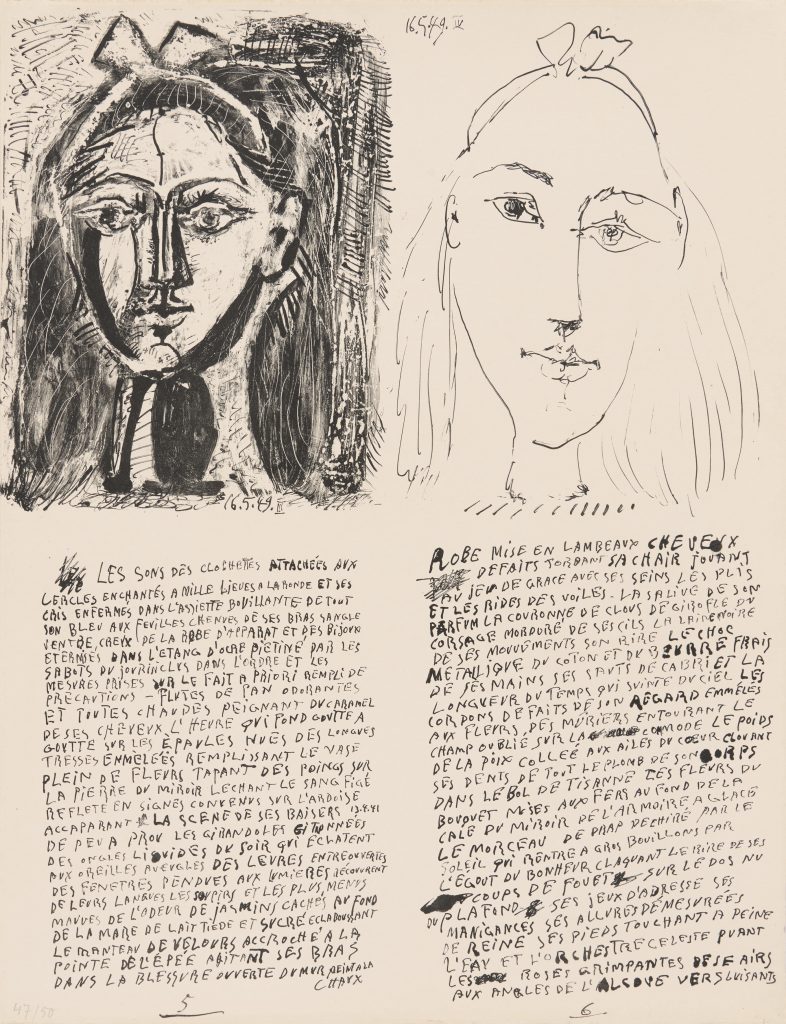 16.5.49. IV
16.5.49. III
LES SONS DES CLOCHETTES ATTACHÉES AUX
CERCLES ENCHANTÉS A MILLE LIEUES A LA RONDE ET SES
CRIS ENFERMÉS DANS L'ASSIETTE BOUILLANTE DE TOUT
SON BLEU AUX FEUILLES DE SES BRAS SANGLE
VENTRE, CREUX DE LA ROBE D'APPARAT ET DES BIJOUX
ETERNISÉS DANS L'ETANG D'OCRE PIETINÉ PAR LES
SABOTS DU JOUR INCLUS DANS L'ORDRE ET LES
MESURES PRISES SUR LE FAIT A PRIORI REMPLI DE
PRÉCAUTIONS - FLUTES DE PAN ODORANTES
ET TOUTES CHAUDES PEIGNANT DU CARAMEL
DE SES CHEVEUX L'HEURE QUI POND GOUTTE A
GOUTTE SUR LES ÉPAULES NUES DES LONGUES
TRESSES EMMELÉES REMPLISSANT LE VASE
PLEIN DE FLEURS TAPANT DES POINGS SUR
LA PIERRE DU MIROIR LECHANT LE SANG FIGÉ
REFLETÉ EN SIGNES CONVENUS SUR L'ARDOISE
ACCAPARANT LA SCENE DE SES BAISERS 13.4.41
DE PEU A PROU LES GIRANDOLES CITRONNÉES
DES ONGLES LIQUIDES DU SOIR QUI ÉCLATENT
AUX OREILLES AVEUGLES DES LEVRES ENTREOUVERTES
DES FENETRES PENDUES AUX LUMIERES RECOUVRENT
DE LEURS LANGUES LES SOUPIRS ET LES PLIS MENUS
MAUVES DE L'ODEUR DE JASMINS CACHÉS AU FOND
DE LA MARE DE LAIT TIEDE ET SUCRÉ ECLABOUSSANT
LE MANTEAU DE VELOURS ACCROCHÉ A LA
POINTE DE L'ÉPÉE AGITANT SES BRAS
DANS LA BLESSURE OUVERTE DU MUR PEINT A LA
CHAUX
5
47/50
ROBE MISE EN LAMBEAUX CHEVEUX
DEFAITS TORDANT SA CHAIR JOUANT
AU JEU DE GRACE AVEC SES SEINS LES PLIS
ET LES RIDES DES VOILES. LA SALIVE DE SON
PARFUM LA COURONNE DE CLOUS DE GIROFLE DU
CORSAGE MORDORÉ DE SES CILS LA
DE SES MOUVEMENTS SON RIRE LE CHOC
METALLIQUE DU COTON ET DU BEURRE FRAIS
DE SES MAINS SES SAUTS DE CABRI ET LA
LONGUEUR DU TEMPS QUI SUINTE DU CIEL LES
CORDONS DEFAITS DE SON REGARD EMMELÉS
AUX FLEURS DES MÛRIERS ENTOURANT LE
CHAMP OUBLIÉ SUR LA COMMODE LE POIDS
DE LA POIX COLLÉE AUX AILES DU CŒUR CLOUANT
SES DENTS DE TOUT LE PLOMB DE SON CORPS
DANS LE BOL DE TISANNE DES FLEURS DU
BOUQUET MISES AUX FERS AU FOND DE LA
CALE DU MIROIR DE L'ARMOIRE A GLACE
LE MORCEAU DE DRAP DECHIRÉ PAR LE
SOLEIL QUI RENTRE A GROS BOUILLONS PAR
L'ÉGOUT DU BONHEUR CLAQUANT LE RIRE DE SES
COUPS DE FOUET SUR LE DOS NU
DU PLAFOND SES JEUX D'ADRESSE SES
MANIGANCES SES ALLURES DEMESURÉES
DE REINE SES PIEDS TOUCHANT A PEINE
L'EAU ET L'ORCHESTRE CELESTE PUANT
LES ROSES GRIMPANTES DE SES AIRS
AUX ANGLES DE L'ALCOVE VERS LUISANTS
6